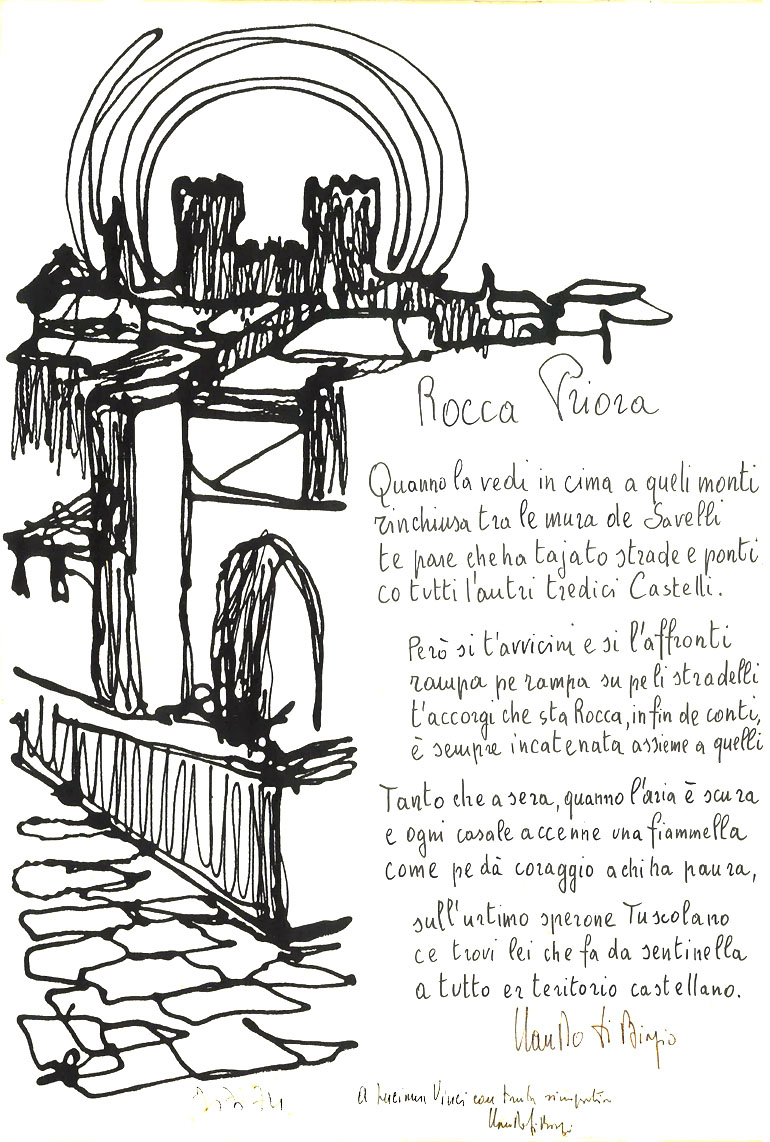 Rocca Priora
Quanno la vedi in cima a queli monti
rinchiusa tra le mura de Savelli
te pare che ha tajato strade e ponti
co tutti l'autri tredici Castelli.
Però si t'avvicini e si l'affronti
rampa pe rampa su pe li stradelli
t'accorgi che sta Rocca, in fin de conti,
è sempre incatenata assieme a quelli
Tanto che a sera, quanno l'aria è scura
e ogni casale accenne una fiammella
come pe dà coraggio a chi ha paura,
sull'urtimo sperone Tuscolano
ce trovi lei che fa da sentinella
a tutto er teritorio castellano.
A Vinci con tanta simpatia